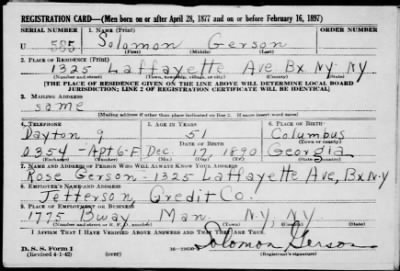 REGISTRATION CARD—(Men born on or after April 28, 1877 and on or before February 16, 1897)
SERIAL NUMBER 1. NAME (Print) ORDER NUMBER
U 585 Solomon Gerson
(First) (Middle) (Last)
2. PLACE OF RESIDENCE (Print)
1325 Laffayette Ave Bx NY NY
(Number and street) (Town, township, village, or city) (County) (State)
[THE PLACE OF RESIDENCE GIVEN ON THE LINE ABOVE WILL DETERMINE LOCAL BOARD
JURISDICTION; LINE 2 OF REGISTRATION CERTIFICATE WILL BE IDENTICAL]
3. MAILING ADDRESS
same
(Mailing address if other than place indicated on line 2. If same insert word same)
4. TELEPHONE 5. AGE IN YEARS 6. PLACE OF BIRTH
Dayton 9 51 Columbus
DATE OF BIRTH (Town or county)
0354-Apt 6-F Dec. 17 1890 Georgia
(Exchange) (Number) (Mo.) (Day) (Yr.) (State or country)
7. NAME AND ADDRESS OF PERSON WHO WILL ALWAYS KNOW YOUR ADDRESS
Rose Gerson-1325 Laffayette Ave, Bx N.Y
8. EMPLOYER'S NAME AND ADDRESS
Jefferson Credit Co.
9. PLACE OF EMPLOYMENT OR BUSINESS
1775 Bway Man N.Y, NY
(Number and street or R. F. D. number) (Town) (County) (State)
I AFFIRM THAT I HAVE VERIFIED ABOVE ANSWERS AND THAT THEY ARE TRUE.
Solomon Gerson
D. S. S. Form 1
(Revised 4-1-42) (over) (Registrant's signature)